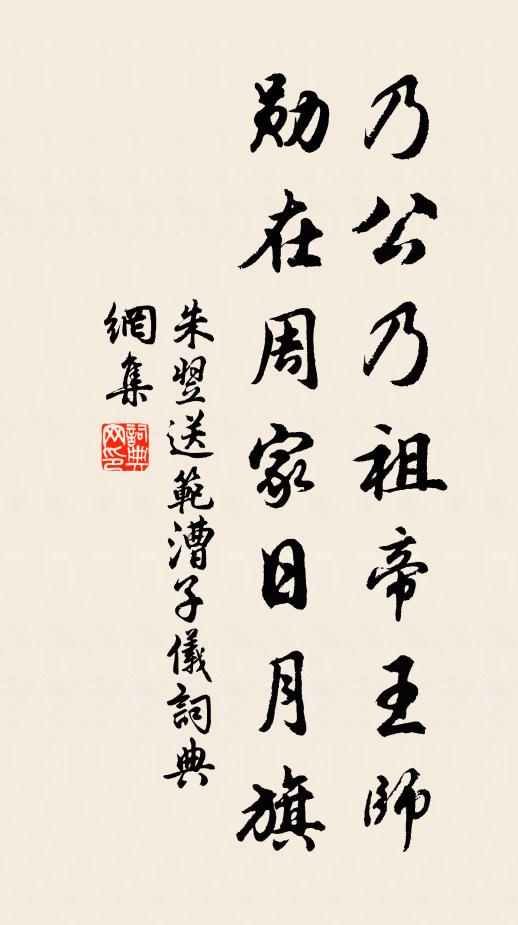 乃公乃祖帝王師
勛在周家日月旗
朱翌送範漕子儀詞典
網集
詞典网印